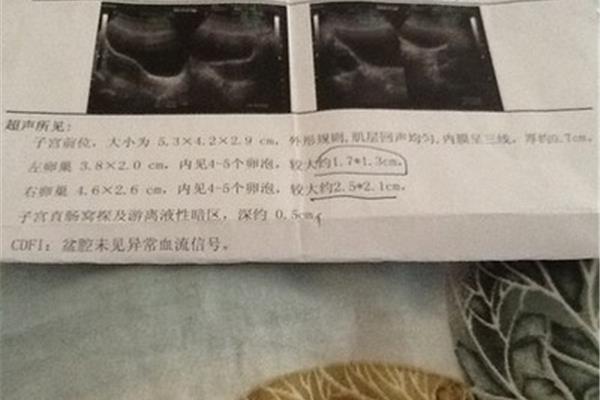 超声所见:
子宫前位，大小为 5.3×4.2×2.9 cm，外形规则,肌层回声均匀,内膜呈三线，厚约0.7cm。
左卵巢 3.8×2.0 cm，内见4-5个卵泡，较大约1.7*1.3cm。
右卵巢 4.6×2.6 cm，内见4-5个卵泡，较大约2.5*2.1cm。
子宫直肠窝探及游离液性暗区，深约 0.5cm。
CDFI：盆腔未见异常血流信号。